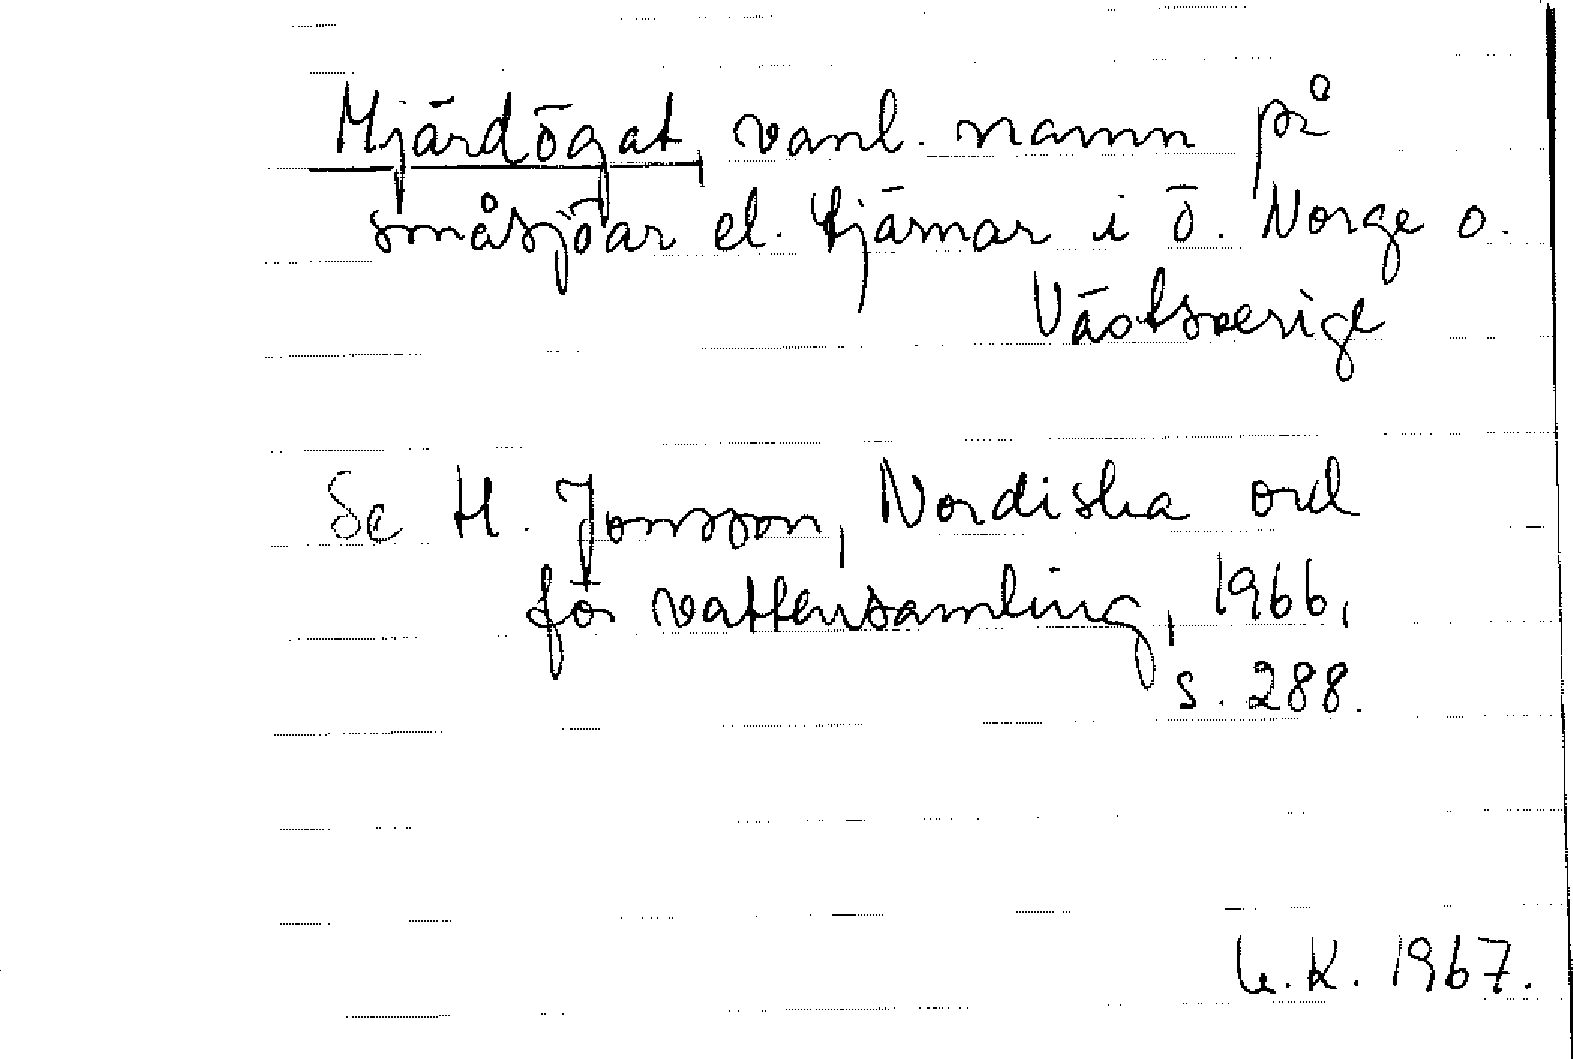 Mjärdögat, vanl. namn på
småsjöar el. tjärnar i ö. Norge o.
Västsverige
Se H. Jonsson, Nordiska ord
för vattensamling, 1966,
s. 288.
K. 1967.